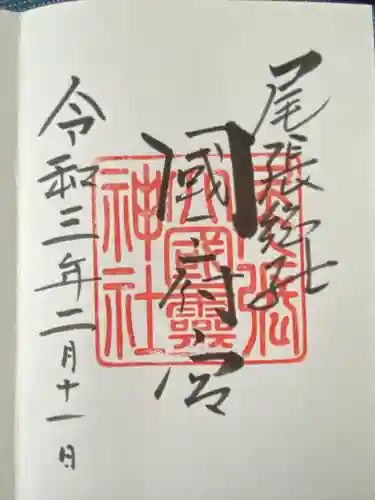 尾張総社
國府宮
令和三年二月十一日
尾張
大國靈
神社